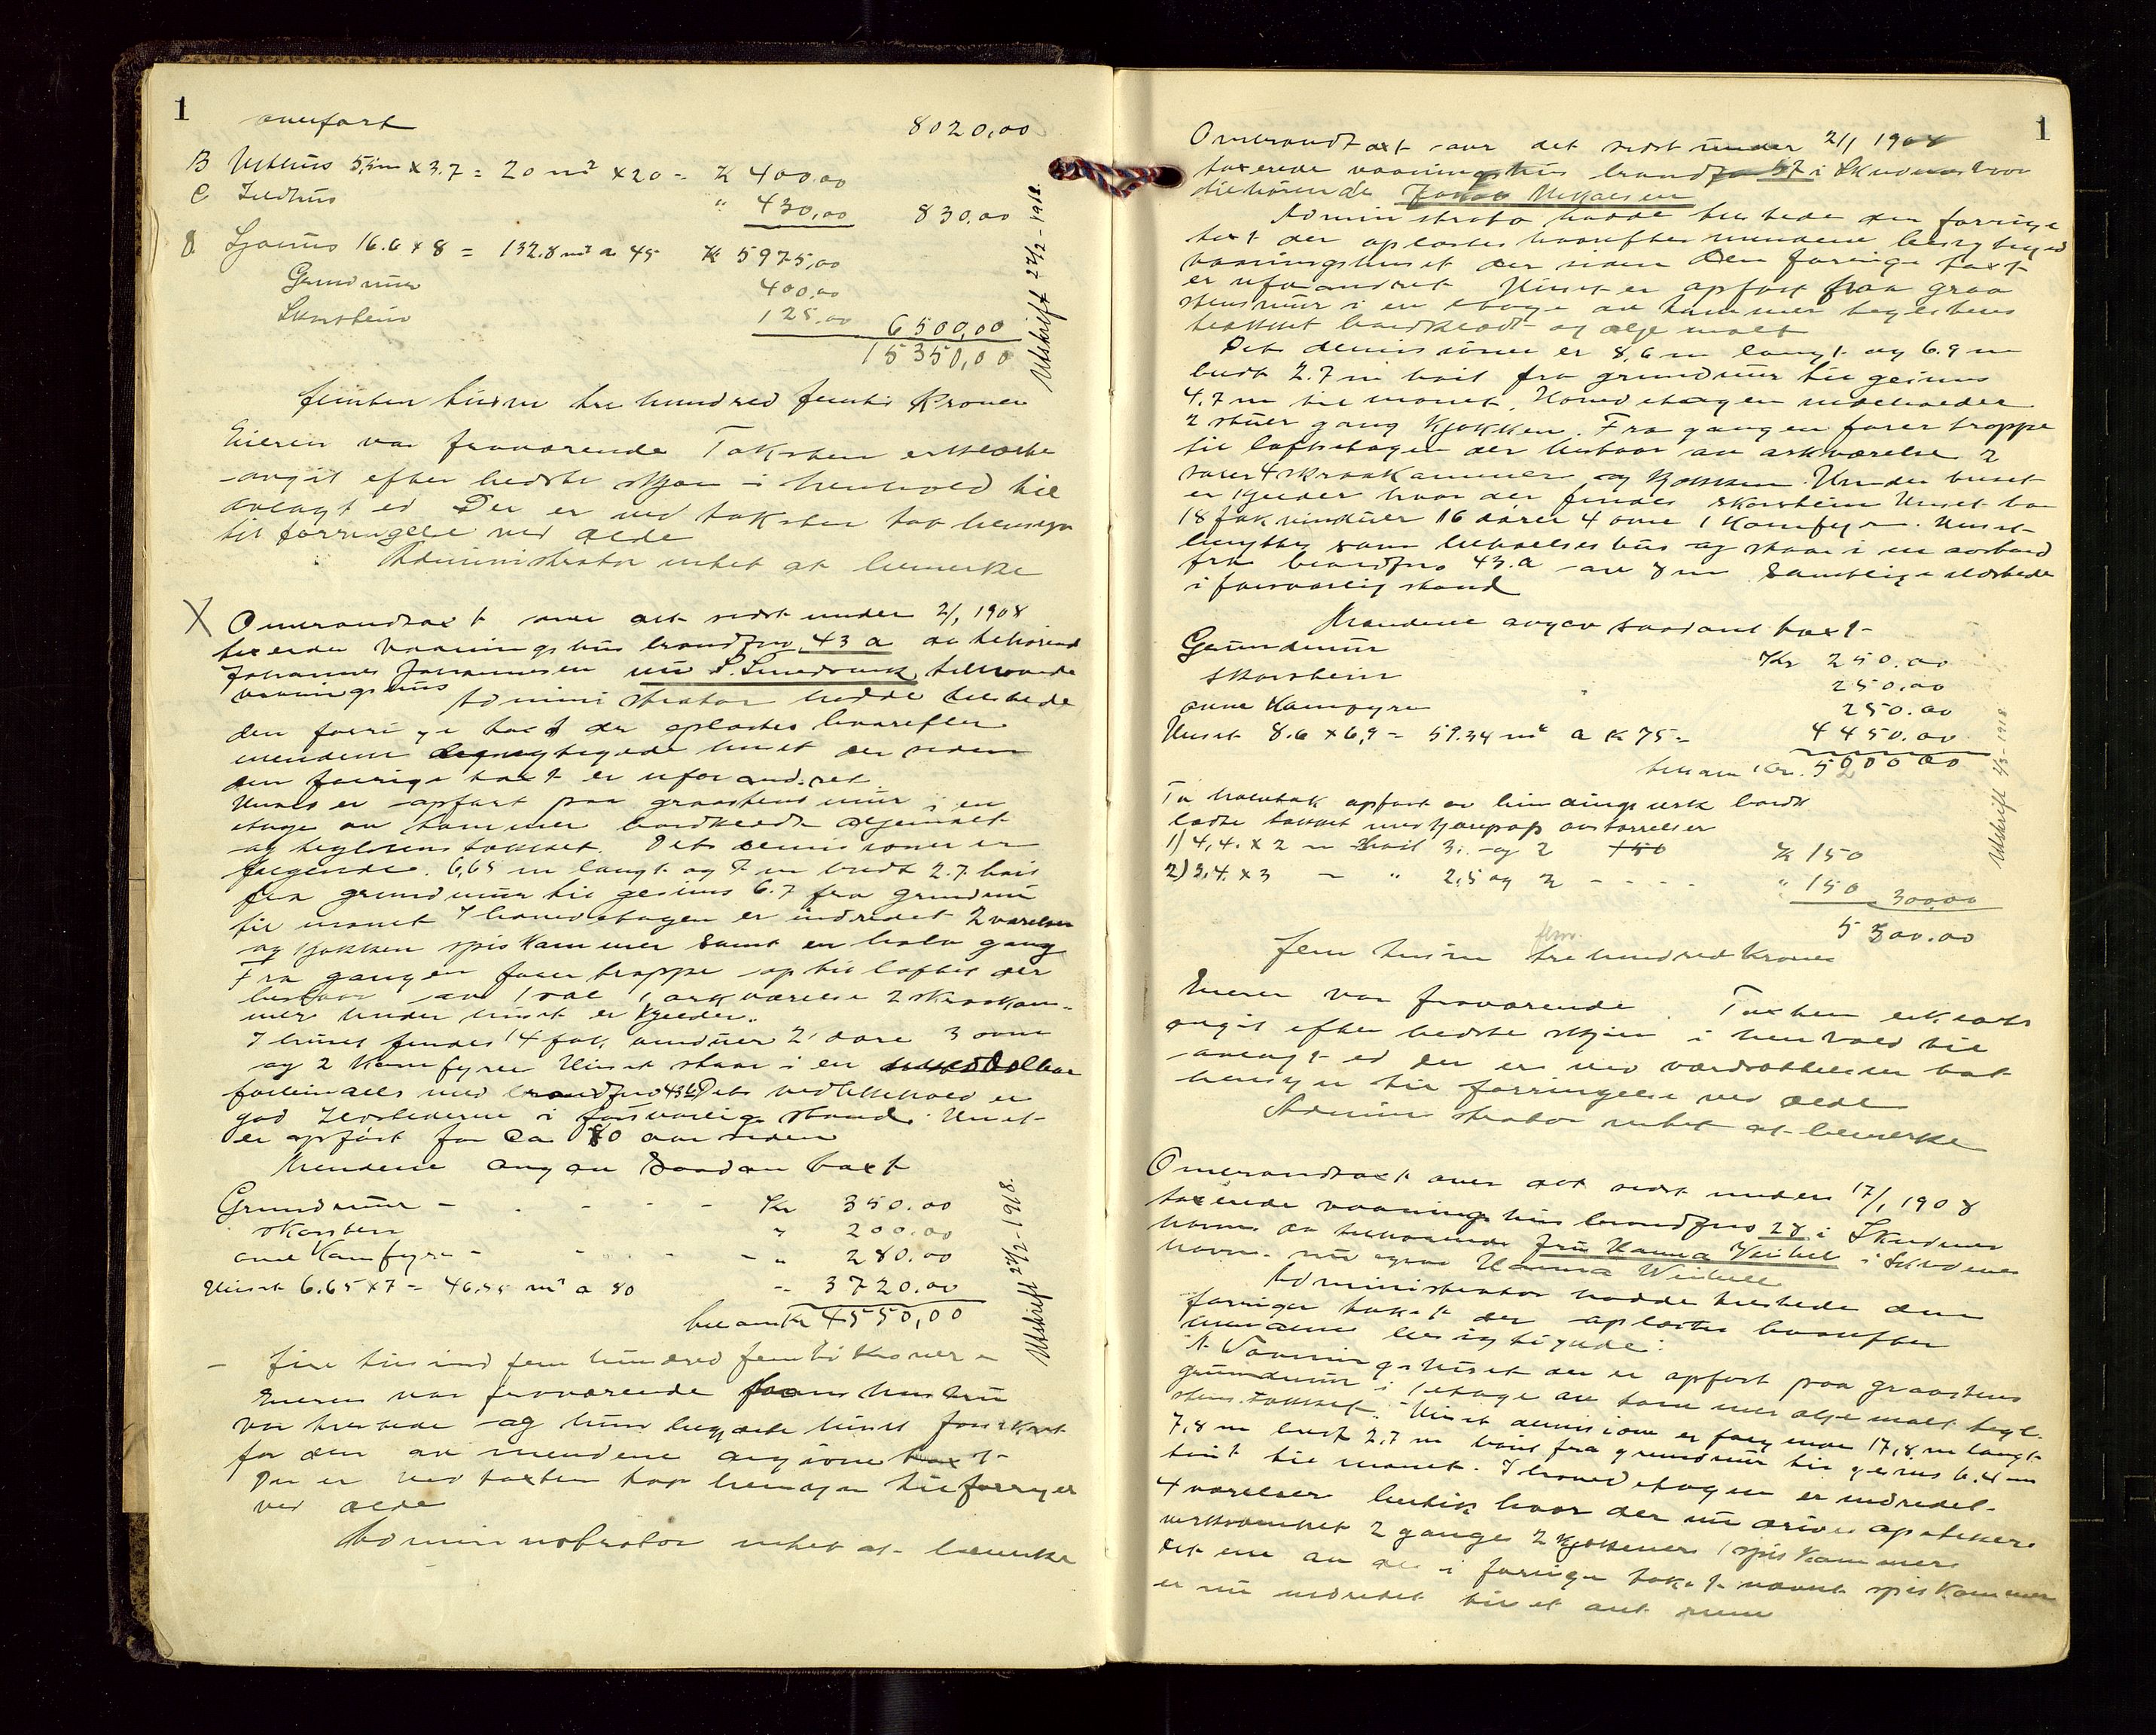 1
overført 8020,00
B Uthus 5,5m x 3.7 = 20 m² x 20 = K 400.00
C Ildhus " 430,00 830,00
D. Sjøhus 16.6 x 8 = 132.8 m² a 45 K 5975,00
Grundmur 400.00
Skorstein 125.00 6500,00
15350,00
Utskrift 27/2-1918.
femten tusen tre hundred femti Kroner
Eieren var fraværende Taksten erklærte
avgit efter bedste skjøn i henhold til
avlagt ed Der er ved taksten tat hensyn
til forringelse ved ælde
Administrator intet at bemerke
X Ombrandtaxt over det sidst under 2/1 1908
taxerede Vaaningshus brandfno. 43 a de tilhørend
Johannes Johannesen nu S. Smedsvik tilhørende
vaaningshus
Administrator hadde tilstede
den forrige taxt der oplæstes hvorefter
mændene besigtigede huset der siden
den forrige taxt er uforandret.
Huset er opført paa graastens mur i en
etage av tømmer bordklædt oljemalt
og teglstens takket. Dets demisioner er
følgende. 6,65 m langt og 7 m bredt 2.7 høit
fra grundmur til gesims 6.7 fra grundmur
til mønet I hovedetagen er indredet 2 værelser
og kjøkken spiskammer samt en halv gang
Fra gangen fører trappe op til loftet der
bestaar av 1 sal 1 arkværelse 2 skraakam-
mer under huset er kjelder.
I huset findes 14 fak vinduer 21 døre 3 ovne
og 2 Kamfyrer Huset staar i en
forbindelse med brandfno 43b Dets vedlikehold er
god Ildstederne i forsvarlig stand. Huset
er opført for ca 80 aar siden
Mændene avgav saadan taxt
Grundmur - - - - Kr 350.00
skorsten " 200.00
ovne Kamfyre - - - - " 280.00
Huset 6.65 x 7 = 46.55 m² a 80 - 3720.00
tilsam Kr 4550,00
Utskrift 27/2-1918.
- fire tusind fem hundred femti Kroner -
Eieren var fraværende hans hustru
var tilstede og hun begjærte huset forsikret
for den av mændene avgivne taxt
Der er ved taxten tat hensyn til forringelse
ved ælde
Administrator intet at bemerke
1
Ombrandtaxt over det sidst under 2/1 1908
taxerede vaaningshus brandfno 57 i Skudeneshavn
tilhørende Mikalsen
Administrator hadde tilstede den forrige
taxt der oplæstes hvorefter mændene besigtiged
vaaningshuset der siden den forrige taxt
er uforandret Huset er opført paa graa
stensmur i en etage av tømmer teglstens
takket bordklædt og olje malt
Dets demisioner er 8,6 m langt og 6.9 m
bredt 2.7 m høit fra grundmur til gesims
4.7 m til mønet. Hovedetagen indeholder
2 stuer gang kjøkken. Fra gangen fører trappe
til loftsetagen der bestaar av arkværelse 2
saler 4 skraakammer og kjøkken. Under huset
er kjelder hvor der findes skorstein Huset har
18 fak vinduer 16 dører 4 ovne 1 Komfyr. Huset
benyttes som beboelseshus og staar i en avstand
fra brandfno 43.a av 8 m Samtlige ildsteder
i forsvarlig stand
Mændene avgav saadant taxt
Grundmur Kr 250.00
Skorstein 250.00
ovne Kamfyre 250.00
Huset 8.6 x 6,9 = 59.34 m² a K 75 = 4450.00
tilsam Kr. 5200 00
To halvtak opført av bindingsverk bordk
lædte takket med tjærepap av størrelser
1) 4,4. x 2 m høit 3. og 2 150 K 150
2) 3,4. x 3 - " 2,5 og 2 - - - - " 150 300,00
5 500.00
Utskrift 1/3-1918
fem
fem tusen tre hundred Kroner
Eieren var fraværende. Taxten erklærtes
avgit efter bedste skjøn i henhold til
avlagt ed der er ved værdsættelsen tat
hensyn til forringelse ved ælde
Administrator intet at bemerke
Ombrandtaxt over det sidst under 17/1 1908
taxerede vaaningshus brandfno 28 i Skudenes
havn de tilhørende fru Hanna Weibel i Skudenes
havn. nu Hanna Weibell
Administrator hadde tilstede den
forrige takst der oplæstes hvorefter
mændene besigtigede:
A Vaaningshuset der er opført paa graastens
grundmur i 1 etage av tømmer olje malt tegl-
stens takket. Huset demisioner er følgende 17,8 m langt
7,8 m bredt 2,7 m høit fra grundmur til gesims 6.4 m
høit til mønet. I hovedetagen er indredet
4 værelser butik hvor der nu drives apoteker
virksomhet 2 gange 2 kjøkkener 1 spiskammer
det ene av de i forrige takst nævnte spiskammer
er nu indredet til et rum